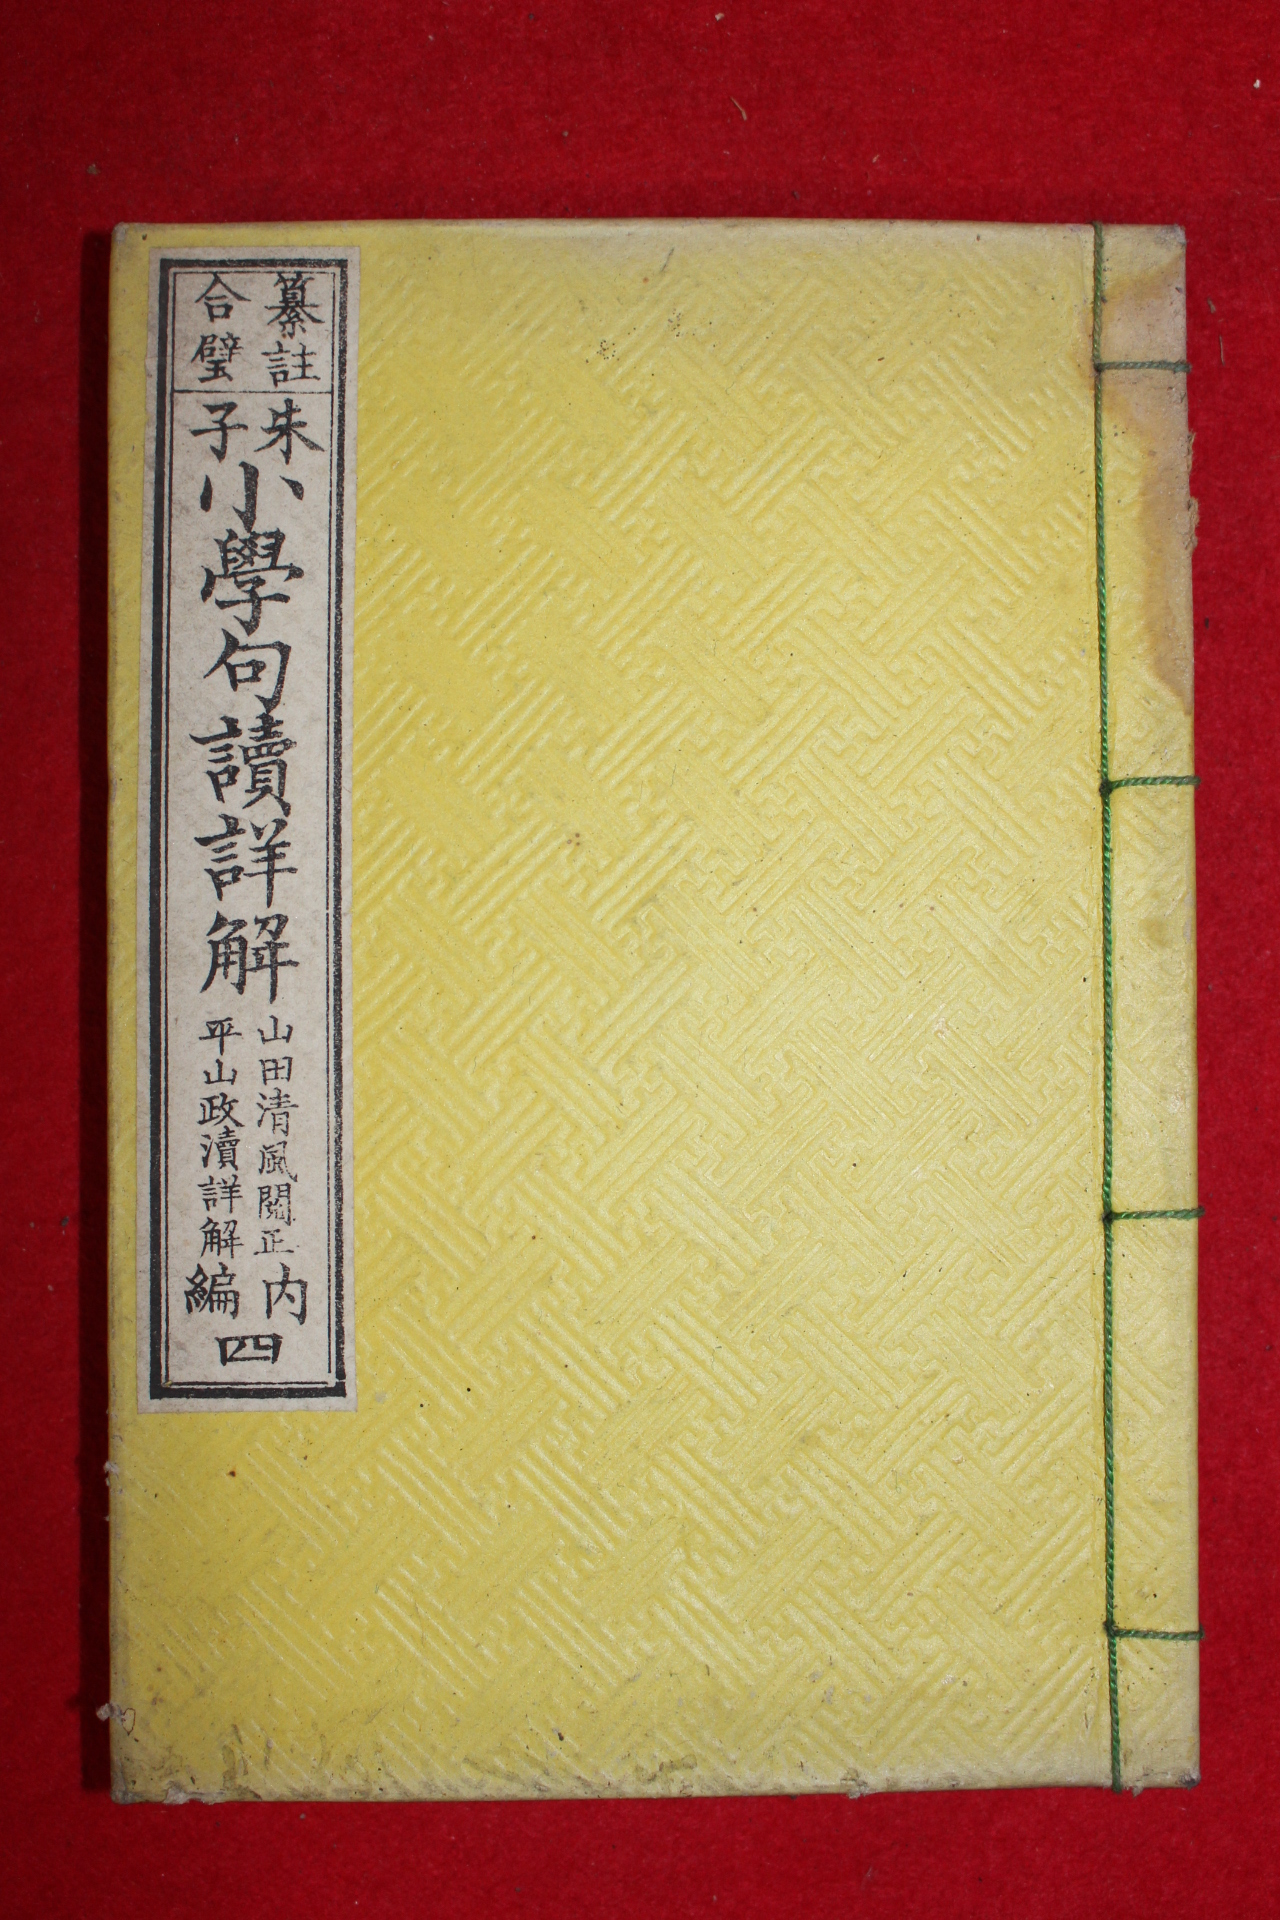 纂註
合璧
朱子
小學句讀詳解
山田清風閲正
平山政瀆詳解
内編
四